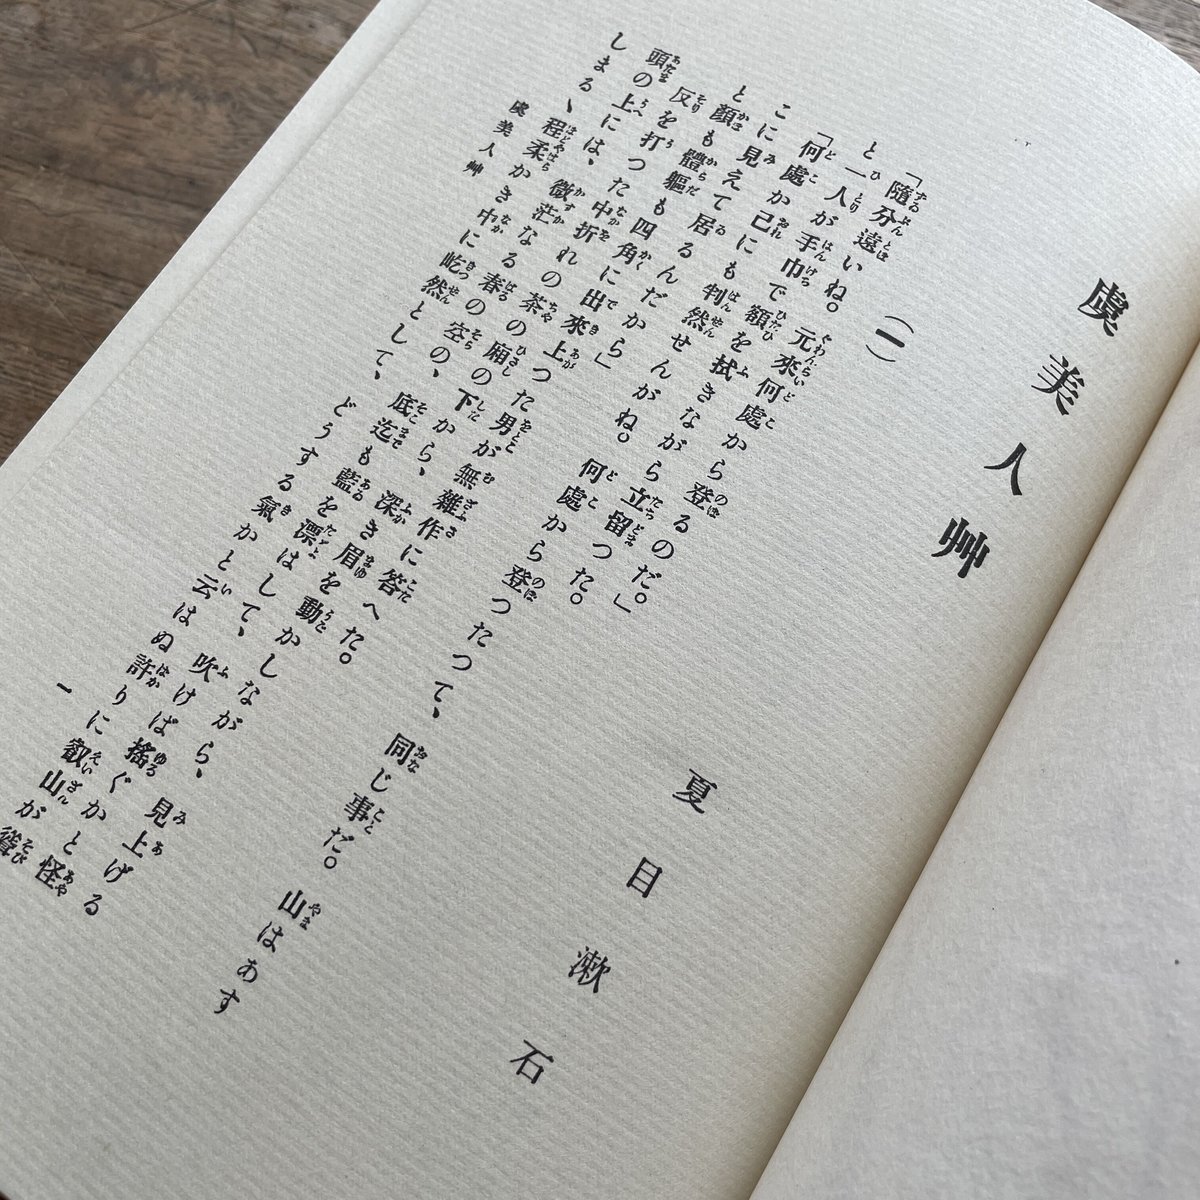 虞美人艸
夏目漱石
(一)
「隨分遠いね。元來何處から登るのだ。」
と一人が手巾で額を拭きながら立留つた。
「何處か己にも判然せんがね。何處から登つたつて、同じ事だ。山はあす
こに見えて居るんだから」
と顏も體軀も四角に出來上つた男が無雜作に答へた。
反を打つた中折れの茶の廂の下から、深き眉を動かしながら、見上げる
頭の上には、微茫なる春の空の、底迄も藍を漂はして、吹けば搖ぐかと怪
しまるゝ程柔かき中に屹然として、どうする氣かと云はぬ許りに叡山が聳
虞美人艸
一